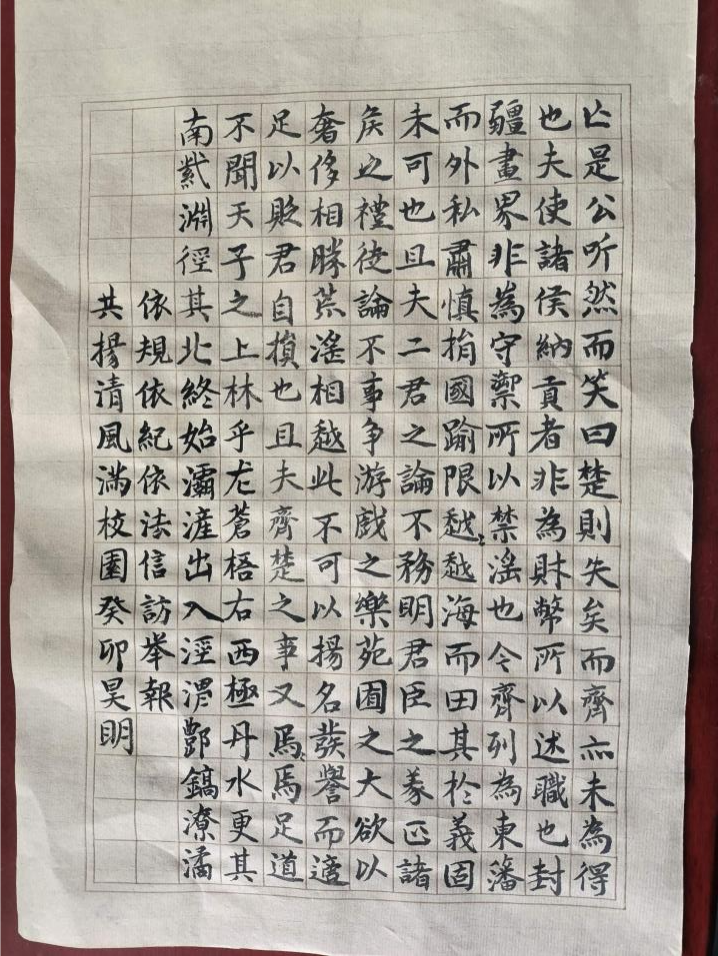 亡是公听然而笑曰楚則失矣而齊亦未為得
也夫使諸侯納貢者非為財幣所以述職也封
疆畫界非為守禦所以禁淫也今齊列為東籓
而外私肅慎捐國踰限越越海而田其於義固
未可也且夫二君之論不務明君臣之義正諸
矦之禮徒論不事争游戲之樂苑囿之大欲以
奢侈相勝荒淫相越此不可以揚名發譽而適
足以貶君自損也且夫齊楚之事又焉焉足道
不聞天子之上林乎左蒼梧右西極丹水更其
南紫淵徑其北終始灞滻出入涇渭酆鎬潦潏
依規依紀依法信訪举報
共揚清風滿校園癸卯昊明